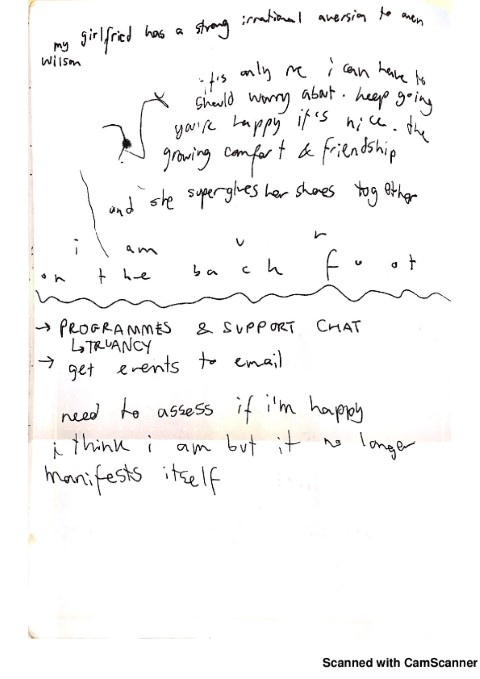 my girlfried has a strong irrational aversion to owen
Wilson
it's only me i can have to
should worry about. keep going
you're happy it's nice. the
growing comfort & friendship
and she superglues her shoes together
i am u r
on the back foot
→ PROGRAMMES & SUPPORT CHAT
↳ TRUANCY
→ get events to email
need to assess if i'm happy
i think i am but it no longer
manifests itself
Scanned with CamScanner